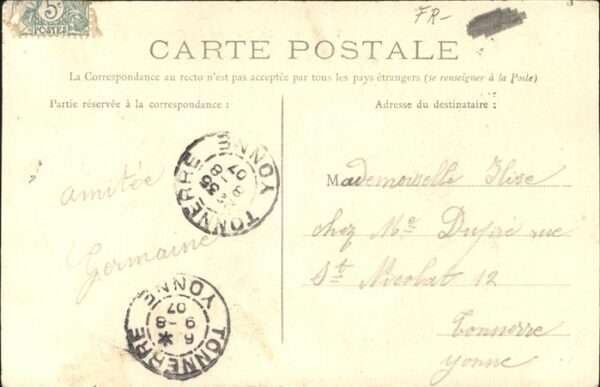 5c
POSTES
FR-
CARTE POSTALE
La Correspondance au recto n'est pas acceptée par tous les pays étrangers (se renseigner à la Poste)
Partie réservée à la correspondance :
Adresse du destinataire :
amitée
Germaine
Mademoiselle Elise
chez Me Dupré rue
St Nicolas 12
Tonnerre
Yonne
TONNERRE YONNE
8 35
07
TONNERRE YONNE
6 *
9 - 8
07